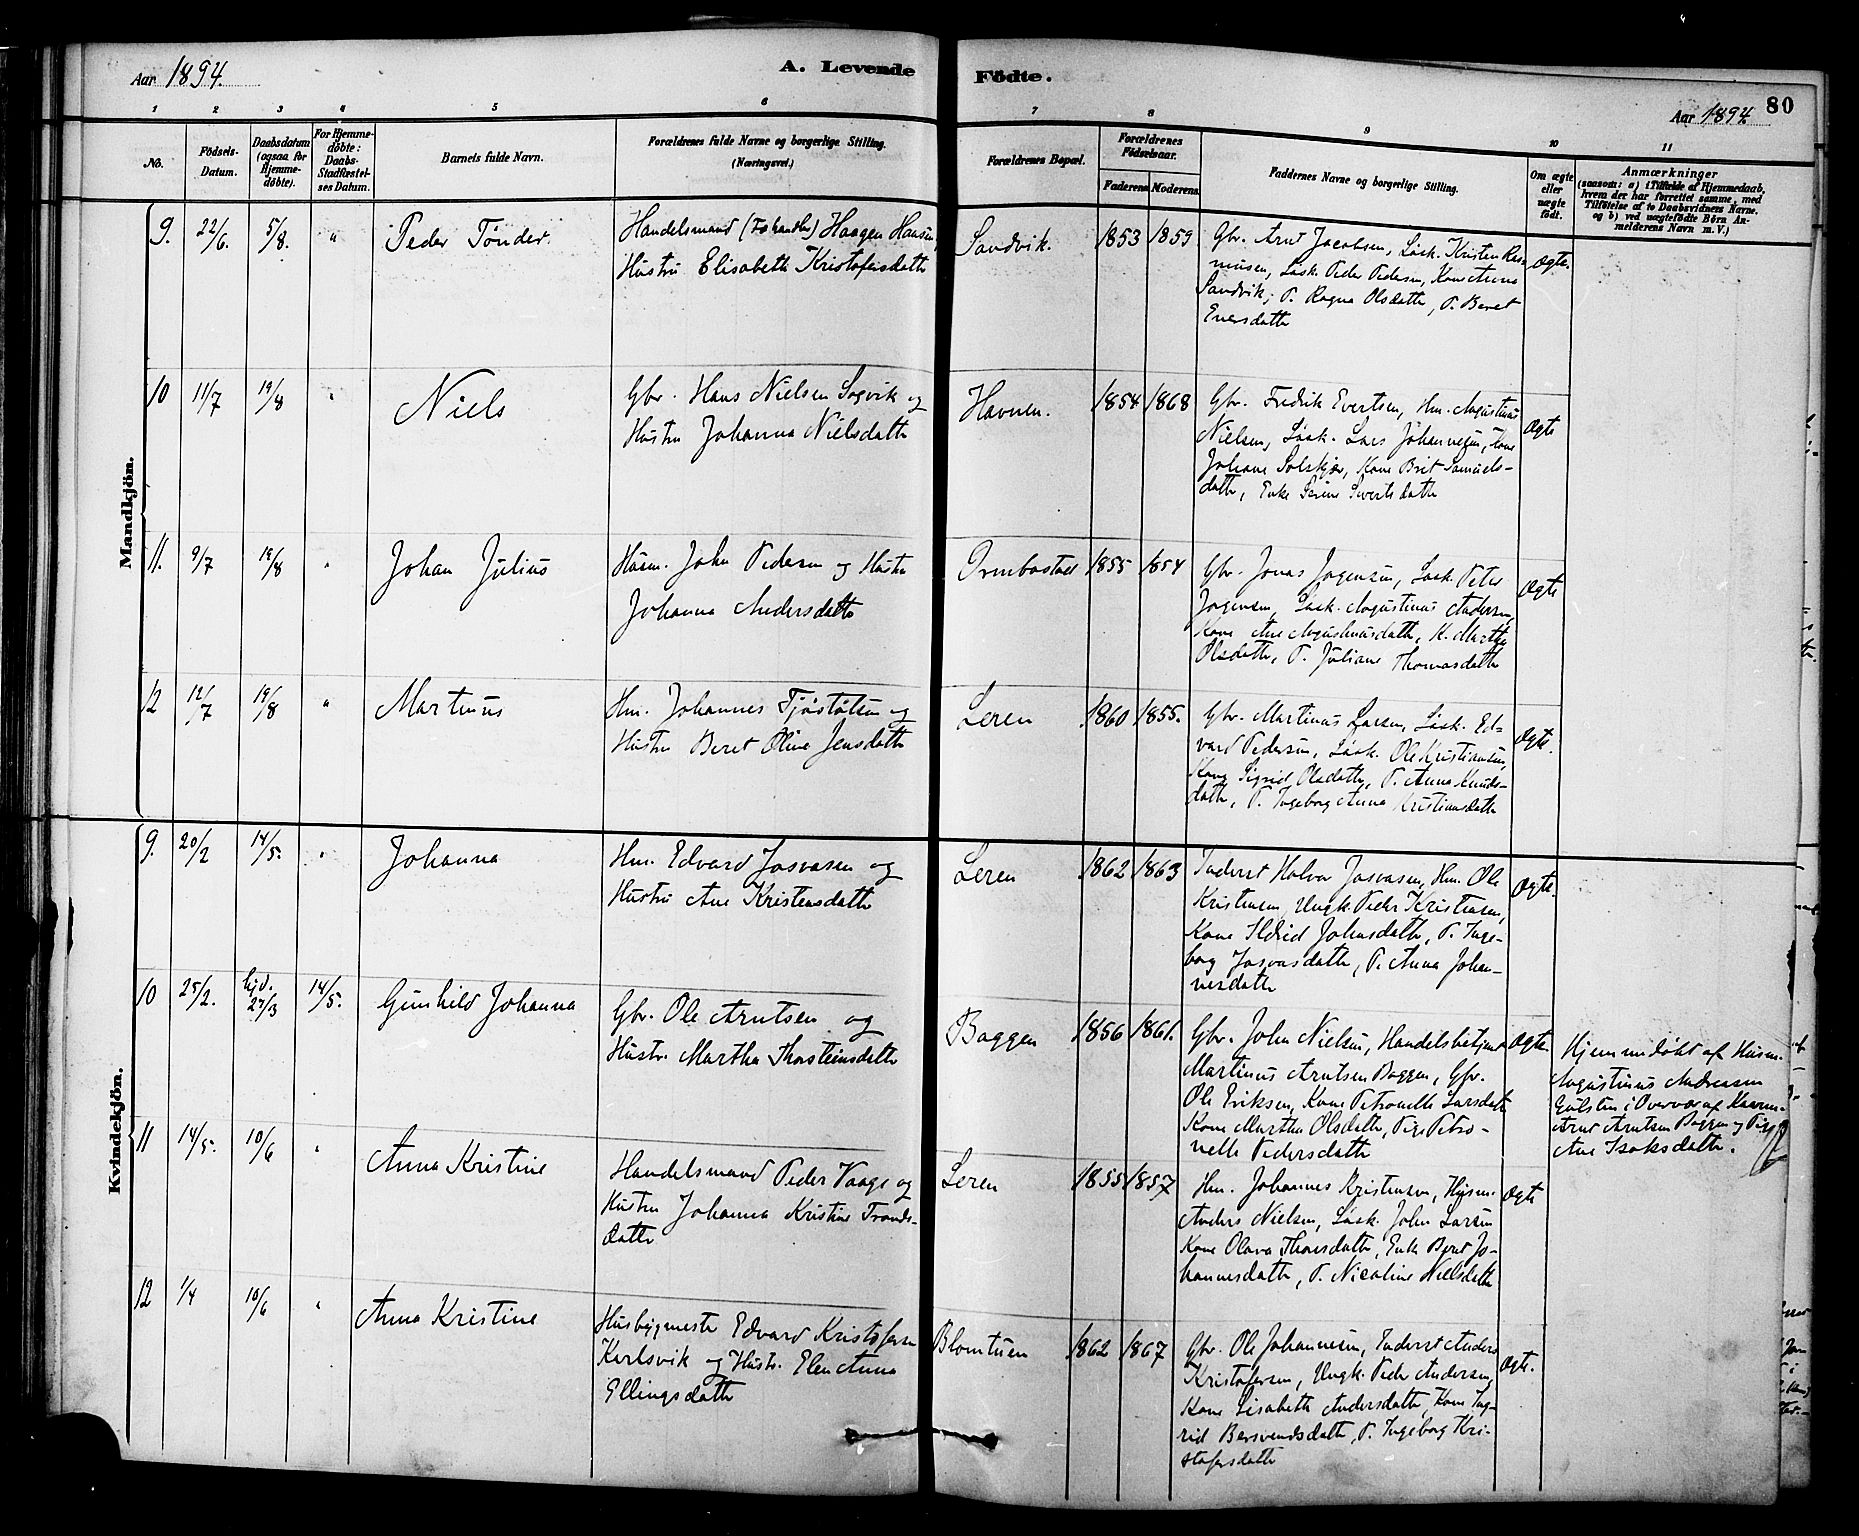 Aar 1894.
A. Levende
Födte.
80
Aar 1894
1 2 3 4 5 6 7 8 9 10 11
No.
Födsels-
Datum.
Daabsdatum
(ogsaa for
Hjemme-
döbte).
For Hjemme-
döbte:
Daabs-
Stadfæstel-
ses Datum.
Barnets fulde Navn.
Forældrenes fulde Navne og borgerlige Stilling.
(Næringsvei.)
Forældrenes Bopæl.
Forældrenes
Födselsaar.
Faderens
Moderens.
Faddernes Navne og borgerlige Stilling.
Om ægte
eller
uægte
födt.
Anmærkninger
(saasom: a) i Tilfælde af Hjemmedaab,
hvem der har forrettet samme, med
Tilföielse af to Daabsvidners Navne.
og b) ved uægtefödte Börn An-
melderens Navn m. V.)
Mandkjön.
9. 22/6. 5/8. "
Peder Tönder.
Handelsmand Haagen Hansen
Hustru Elisabeth Kristofersdatter
Sandvik. 1853 1859
Gbr. Arnt Jacobsen, Løsk. Kristen Ras-
musen, Løsk. Peder Pedersen, Kone Anna
Sandvik, P. Ragna Olsdatter, P. Beret
Eversdatter
Ægte.
10 11/7 19/8 "
Niels
Gbr. Hans Nielsen Sagvik og
Hustru Johanna Nielsdatter
Havnen. 1854 1868
Gbr. Fredrik Evertsen, Hm. Augustinus
Nielsen, Løsk. Lars Johannesen, Kone
Johane Solskjær, Kone Brit Samuels-
datter, Enke Serine Sivertsdatter
Ægte
11. 9/7 19/8 "
Johan Julius
Husm. John Pedersen og Hustru
Johanna Andersdatter
Ormbostad 1855 1854
Gbr. Jonas Jørgensen, Løsk. Peter
Jørgensen, Løsk. Augustinus Andersen,
Kone Ane Augustinusdatter, K. Martha
Olsdatter, P. Juliane Thomasdatter
Ægte
12 12/7 19/8 "
Martinus
Hm. Johannes Tjøstolsen og
Hustru Beret Oline Jensdatter
Leren 1860 1855.
Gbr. Martinus Larsen, Løsk. Ed-
vard Pedersen, Løsk. Ole Kristiansen,
Kone Sigrid Olsdatter, P. Anna Knuds-
datter, P. Ingeborg Anna Kristiansdatter
Ægte.
Kvindekjön.
9. 20/2 14/5. "
Johanna
Hm. Edvard Josvasen og
Hustru Ane Kristensdatter
Leren 1862 1863
Inderst Halvor Josvasen, Hm. Ole
Kristensen, Ungk. Peder Kristensen,
Kone Ildrid Johnsdatter, P. Inge-
borg Josvasdatter, P. Anna Johan-
nesdatter
Ægte.
10 25/2. hjd. 27/3 14/5.
Gunhild Johanna
Gbr. Ole Arntsen og
Hustr. Martha Thorsteinsdatter
Baggen 1856 1861.
Gbr. John Nielsen, Handelsbetjent
Martinus Arntsen Baggen, Gbr.
Ole Eriksen, Kone Petronelle Larsdatter
Kone Martha Olsdatter, Pige Petro-
nelle Pedersdatter
Ægte.
Hjemmedøbt af Husm.
Augustinus Andreasen
i Overvær af
Arnt Arntsen Baggen og Pige
Ane Isaksdatter.
11 14/5. 10/6 "
Anna Kristine
Handelsmand Peder Vaage og
Hustru Johanna Kristine Tronds-
datter
Leren 1855 1857
Hm. Johannes Kristensen, Husm.
Anders Nielsen, Løsk. John Larsen
Kone Olava Thoresdatter, Enke Beret Jo-
hannesdatter, P. Nicoline Nielsdatter
Ægte
12 1/4 10/6 "
Anna Kristine
Husbygmester Edvard Kristofersen
Karlsvik og Hustr. Elen Anna
Ellingsdatter
Blomtuen 1862 1867
Gbr. Ole Johannesen, Inderst Anders
Kristofersen, Ungk. Peder Andersen,
Kone Lisabeth Andersdatter, Kone Ing-
rid Bersvendsdatter, P. Ingeborg Kri-
stofersdatter
Ægte.